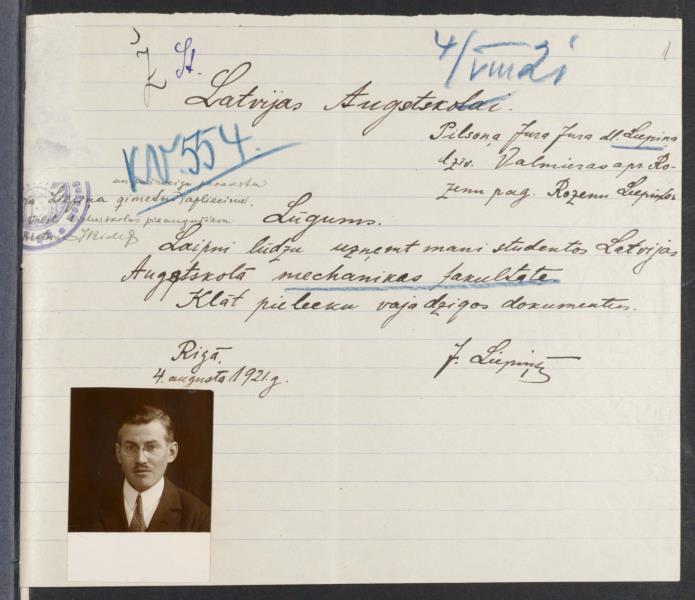 1
Ž St.
4/VIII 21
Latvijas Augstskolai.
Pilsoņa Jura Jura dl. Liepiņa
dzīv. Valmieras apr. Ro-
zenu pag. Rozenu Liepiņos
KN. 554.
paraksta
Liepiņa ģimetni apliecinu.
Lūgums.
Laipni lūdzu uzņemt mani studentos Latvijas
Augstskolā mechanikas fakultātē
Klāt pielieku vajadzīgos dokumentus.
Rīgā,
4. augustā 1921. g.
J. Liepiņš